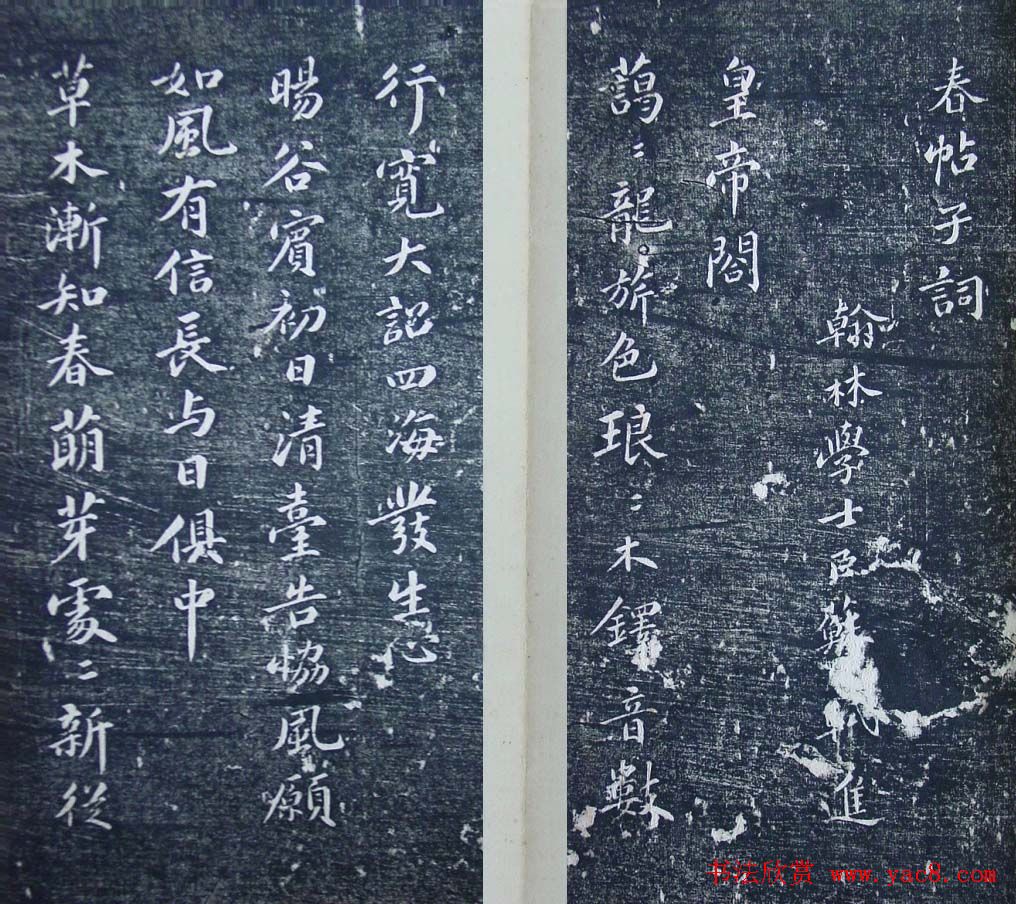 春帖子詞
翰林學士臣蘇軾進
皇帝閤
藹〻龍旂色琅〻木鐸音數
行寬大詔四海發生心
暘谷賓初日清臺告恊風願
如風有信長与日俱中
草木漸知春萌芽處〻新從
书法欣赏 www.yac8.com